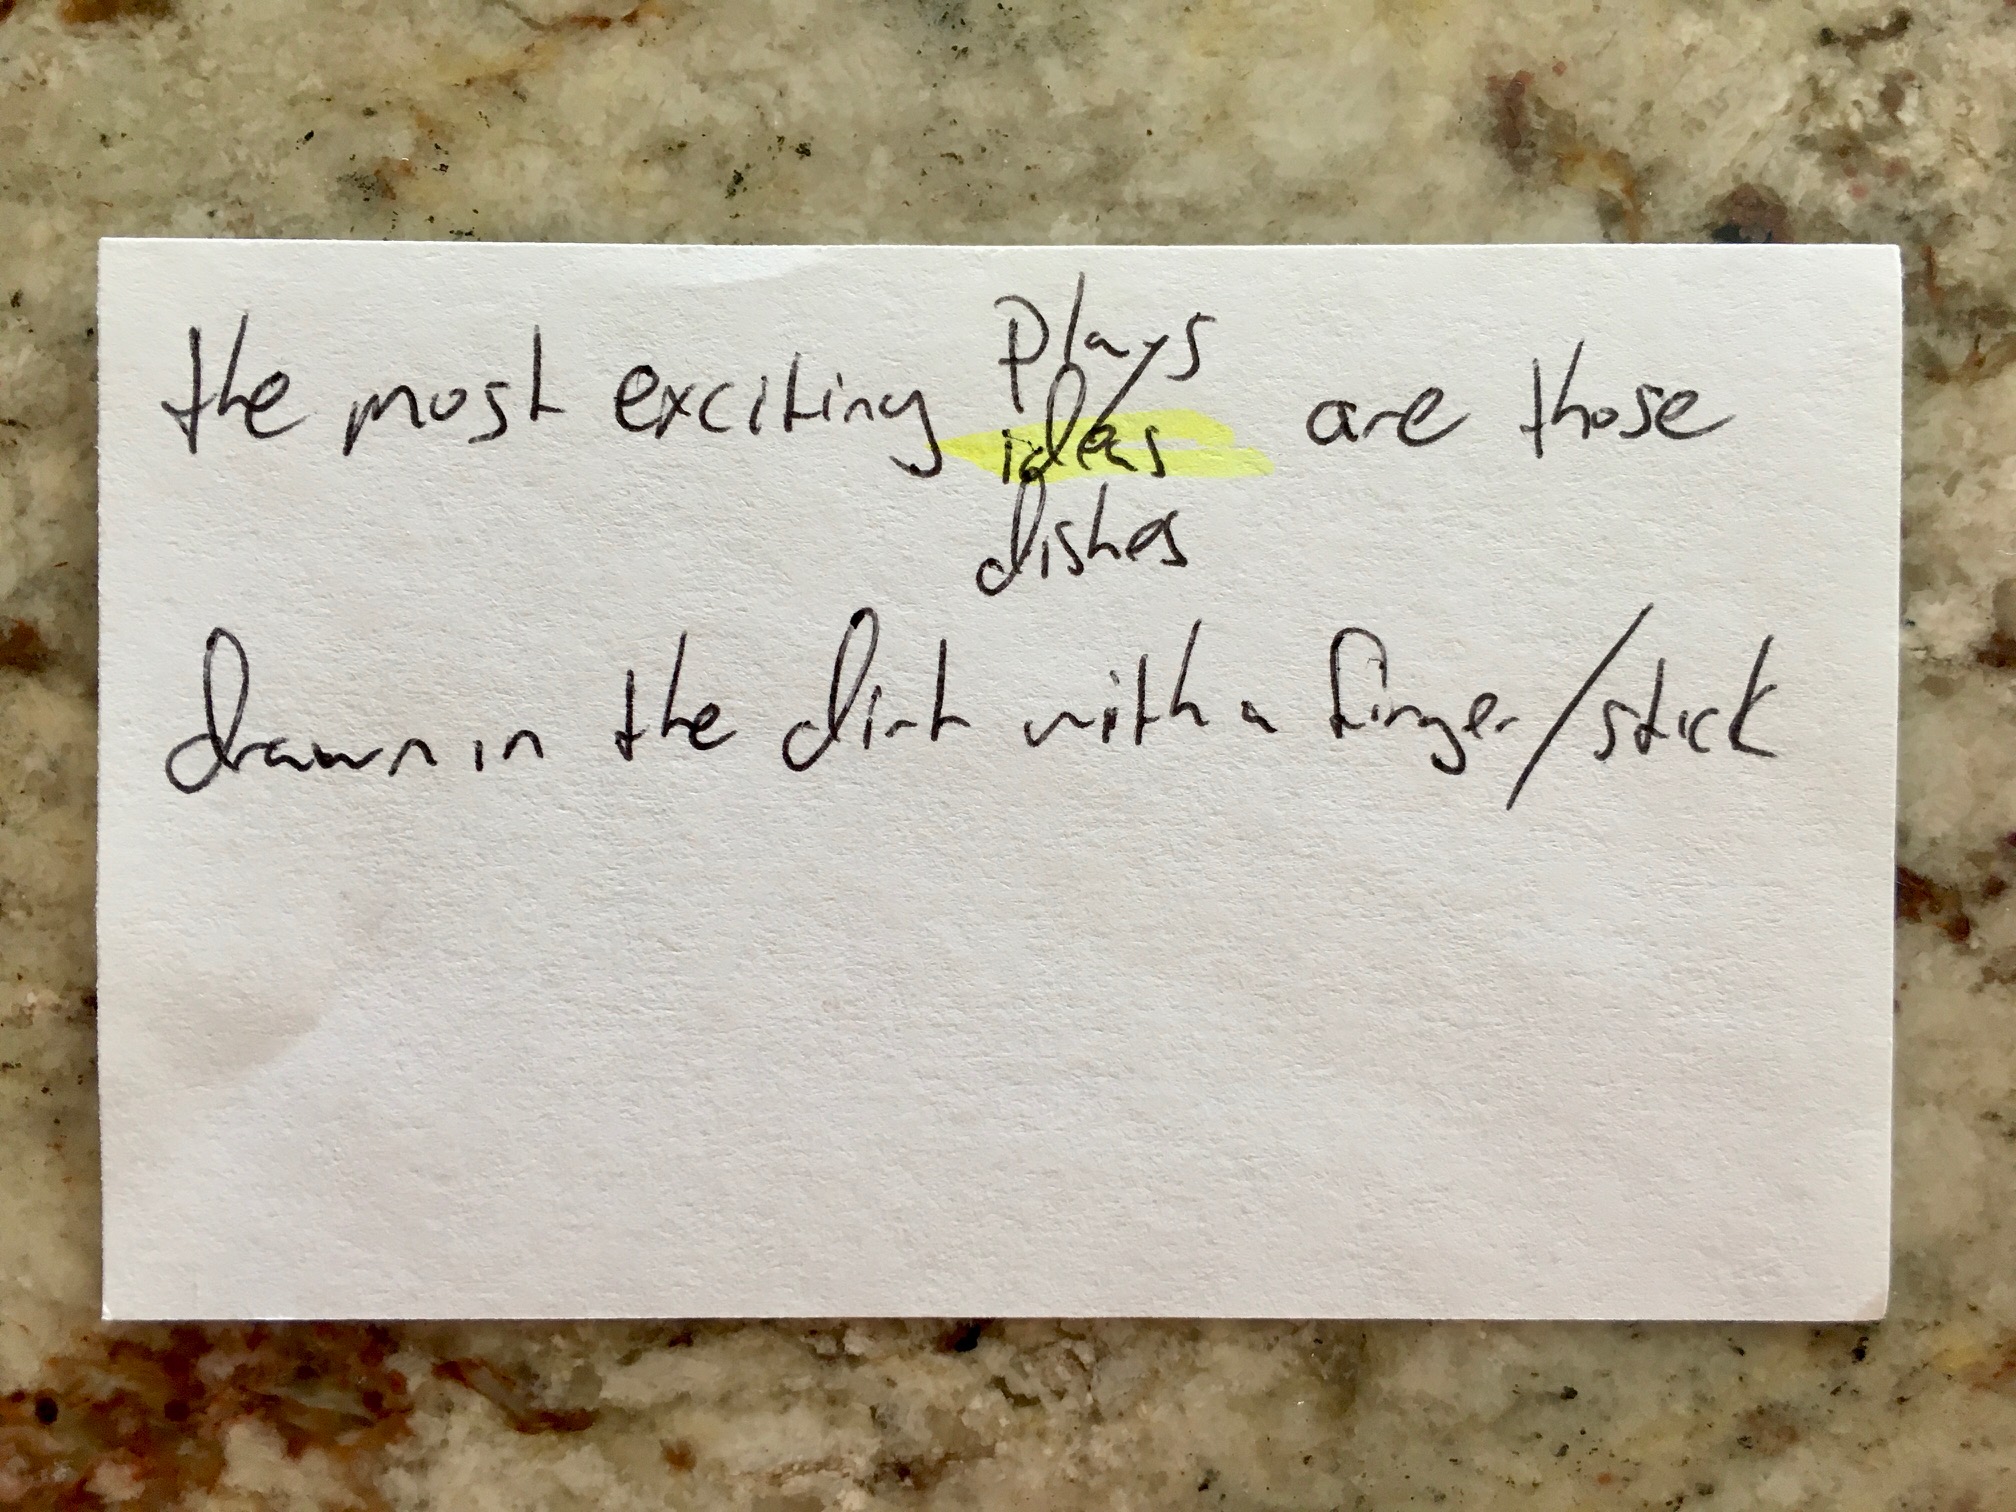 the most exciting plays are those
ideas
dishes
drawn in the dirt with a finger/stick